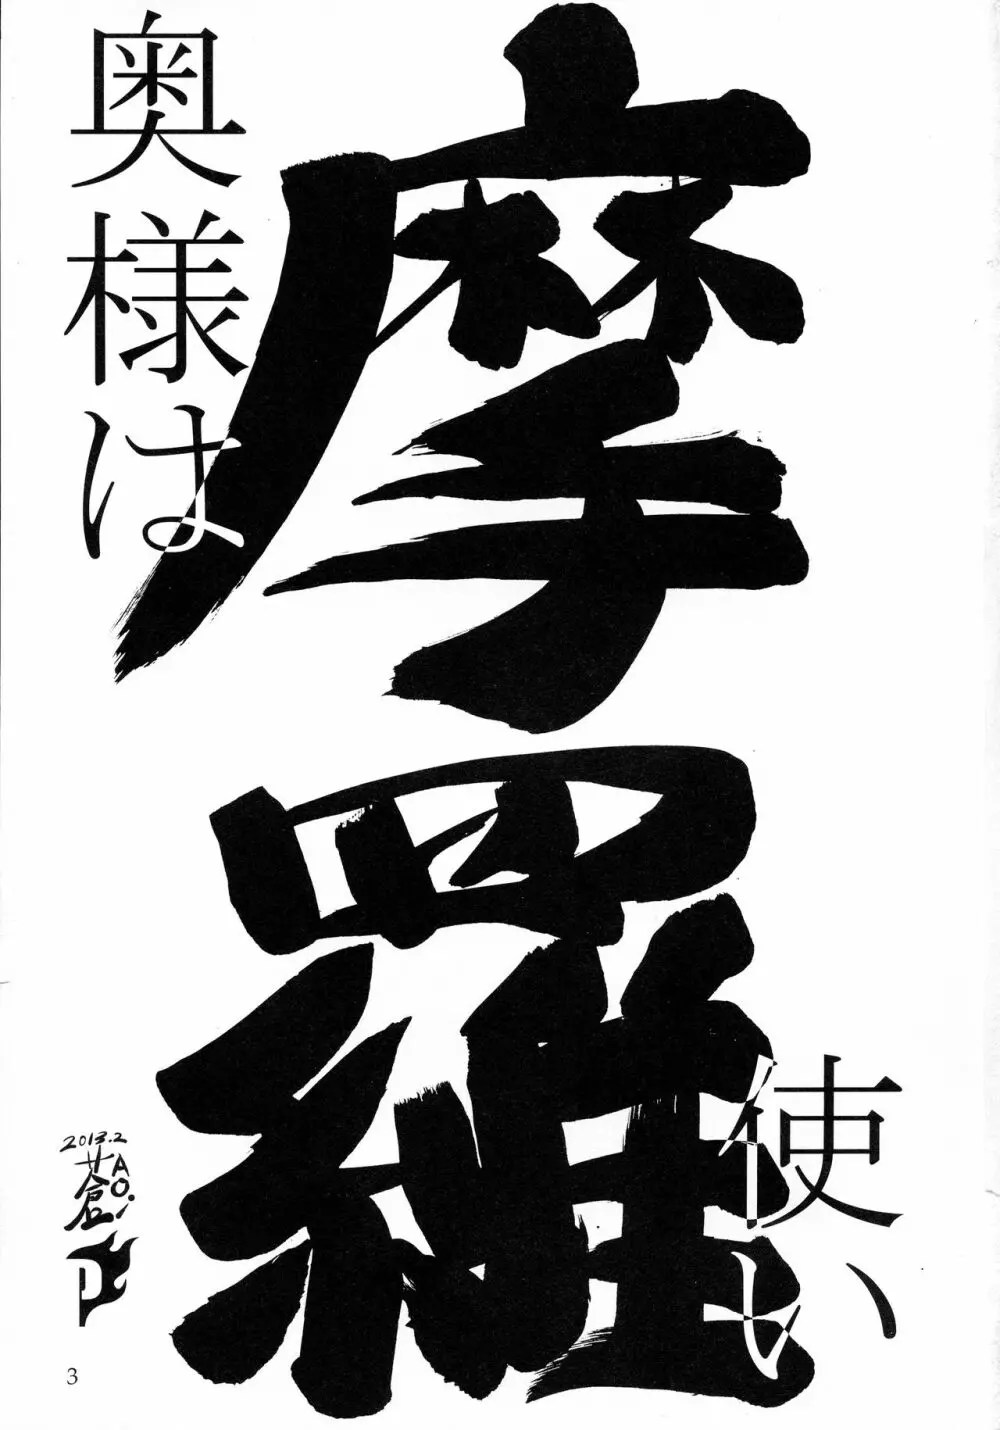 奥様は
摩羅
使い
2013.2
蒼
AOI
P
3